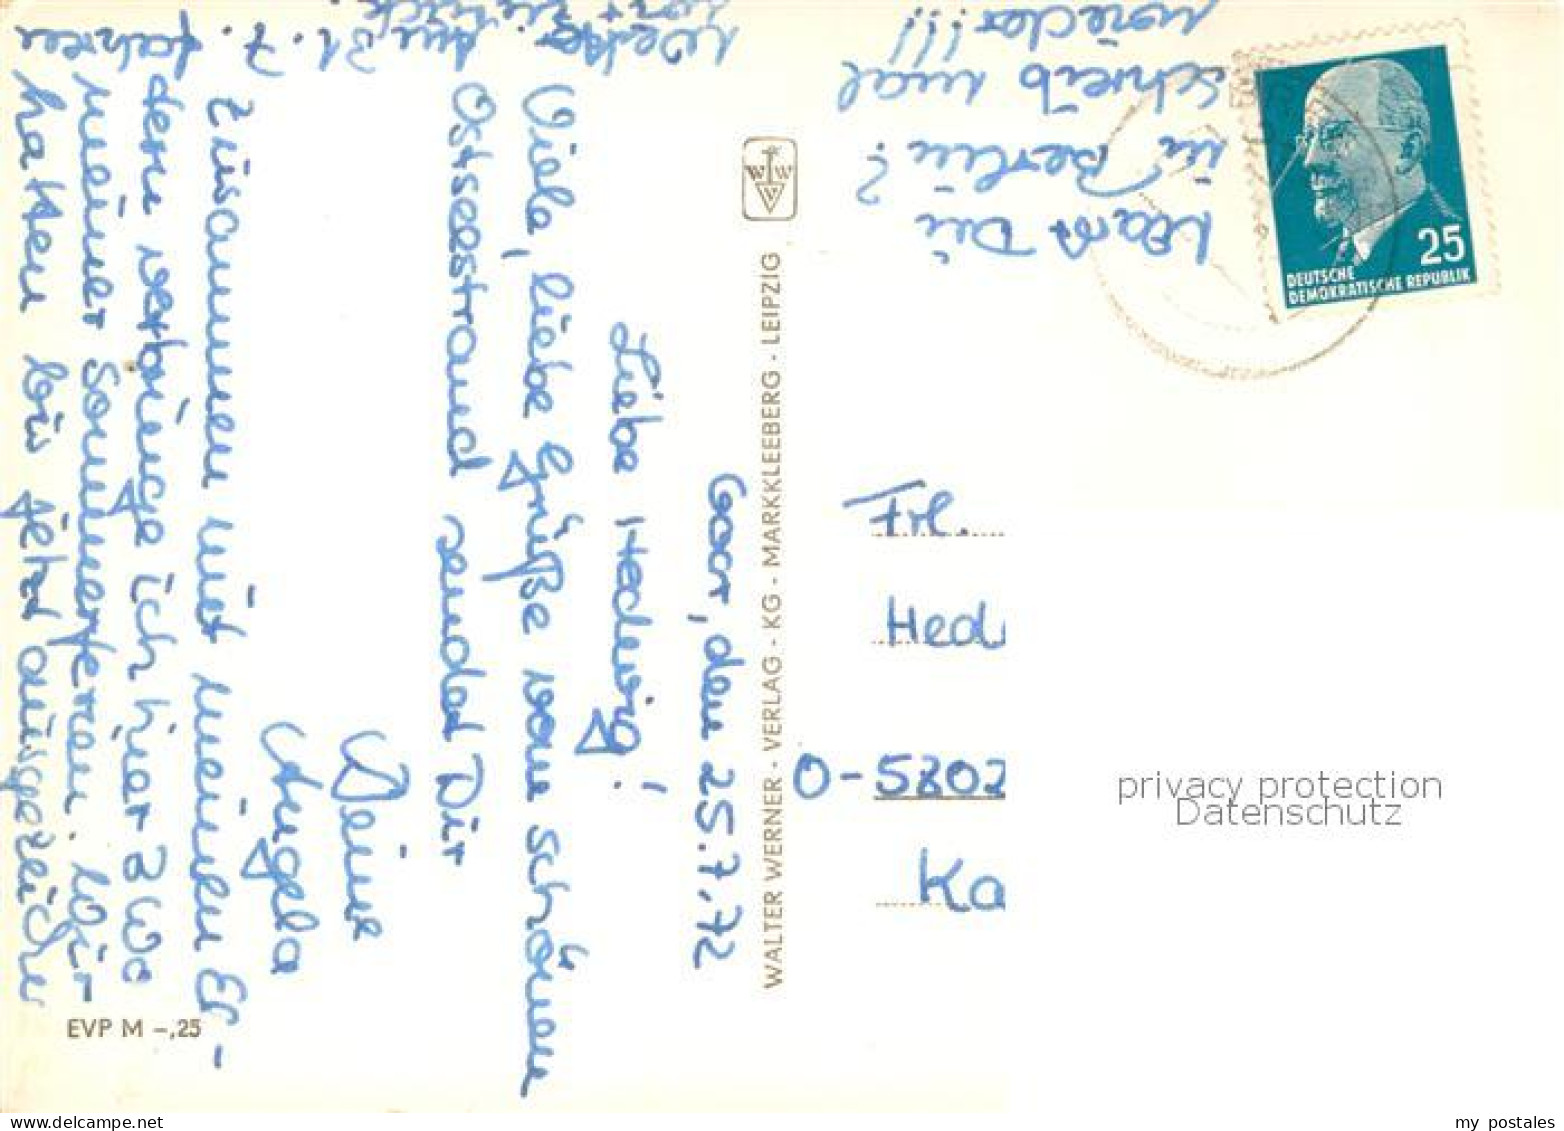 Goor, den 25.7.72
Liebe Hedwig!
Viele, liebe Grüße vom schönen
Ostseestrand sendet Dir
Deine
Angela
Zusammen mit meinen El-
tern verbringe ich hier 3 Wo
meiner Sommerferien. Wir
hatten bis jetzt ausgezeichn
Wetter. Am 31.7. fahren
wir zurück.
Warst Du
in Berlin?
Schreib mal
wieder!!!
EVP M –,25
WALTER WERNER - VERLAG - KG - MARKKLEEBERG - LEIPZIG
WWV
25
DEUTSCHE
DEMOKRATISCHE REPUBLIK
Frl.
Hed
O-5202
Ka
privacy protection
Datenschutz
my postales